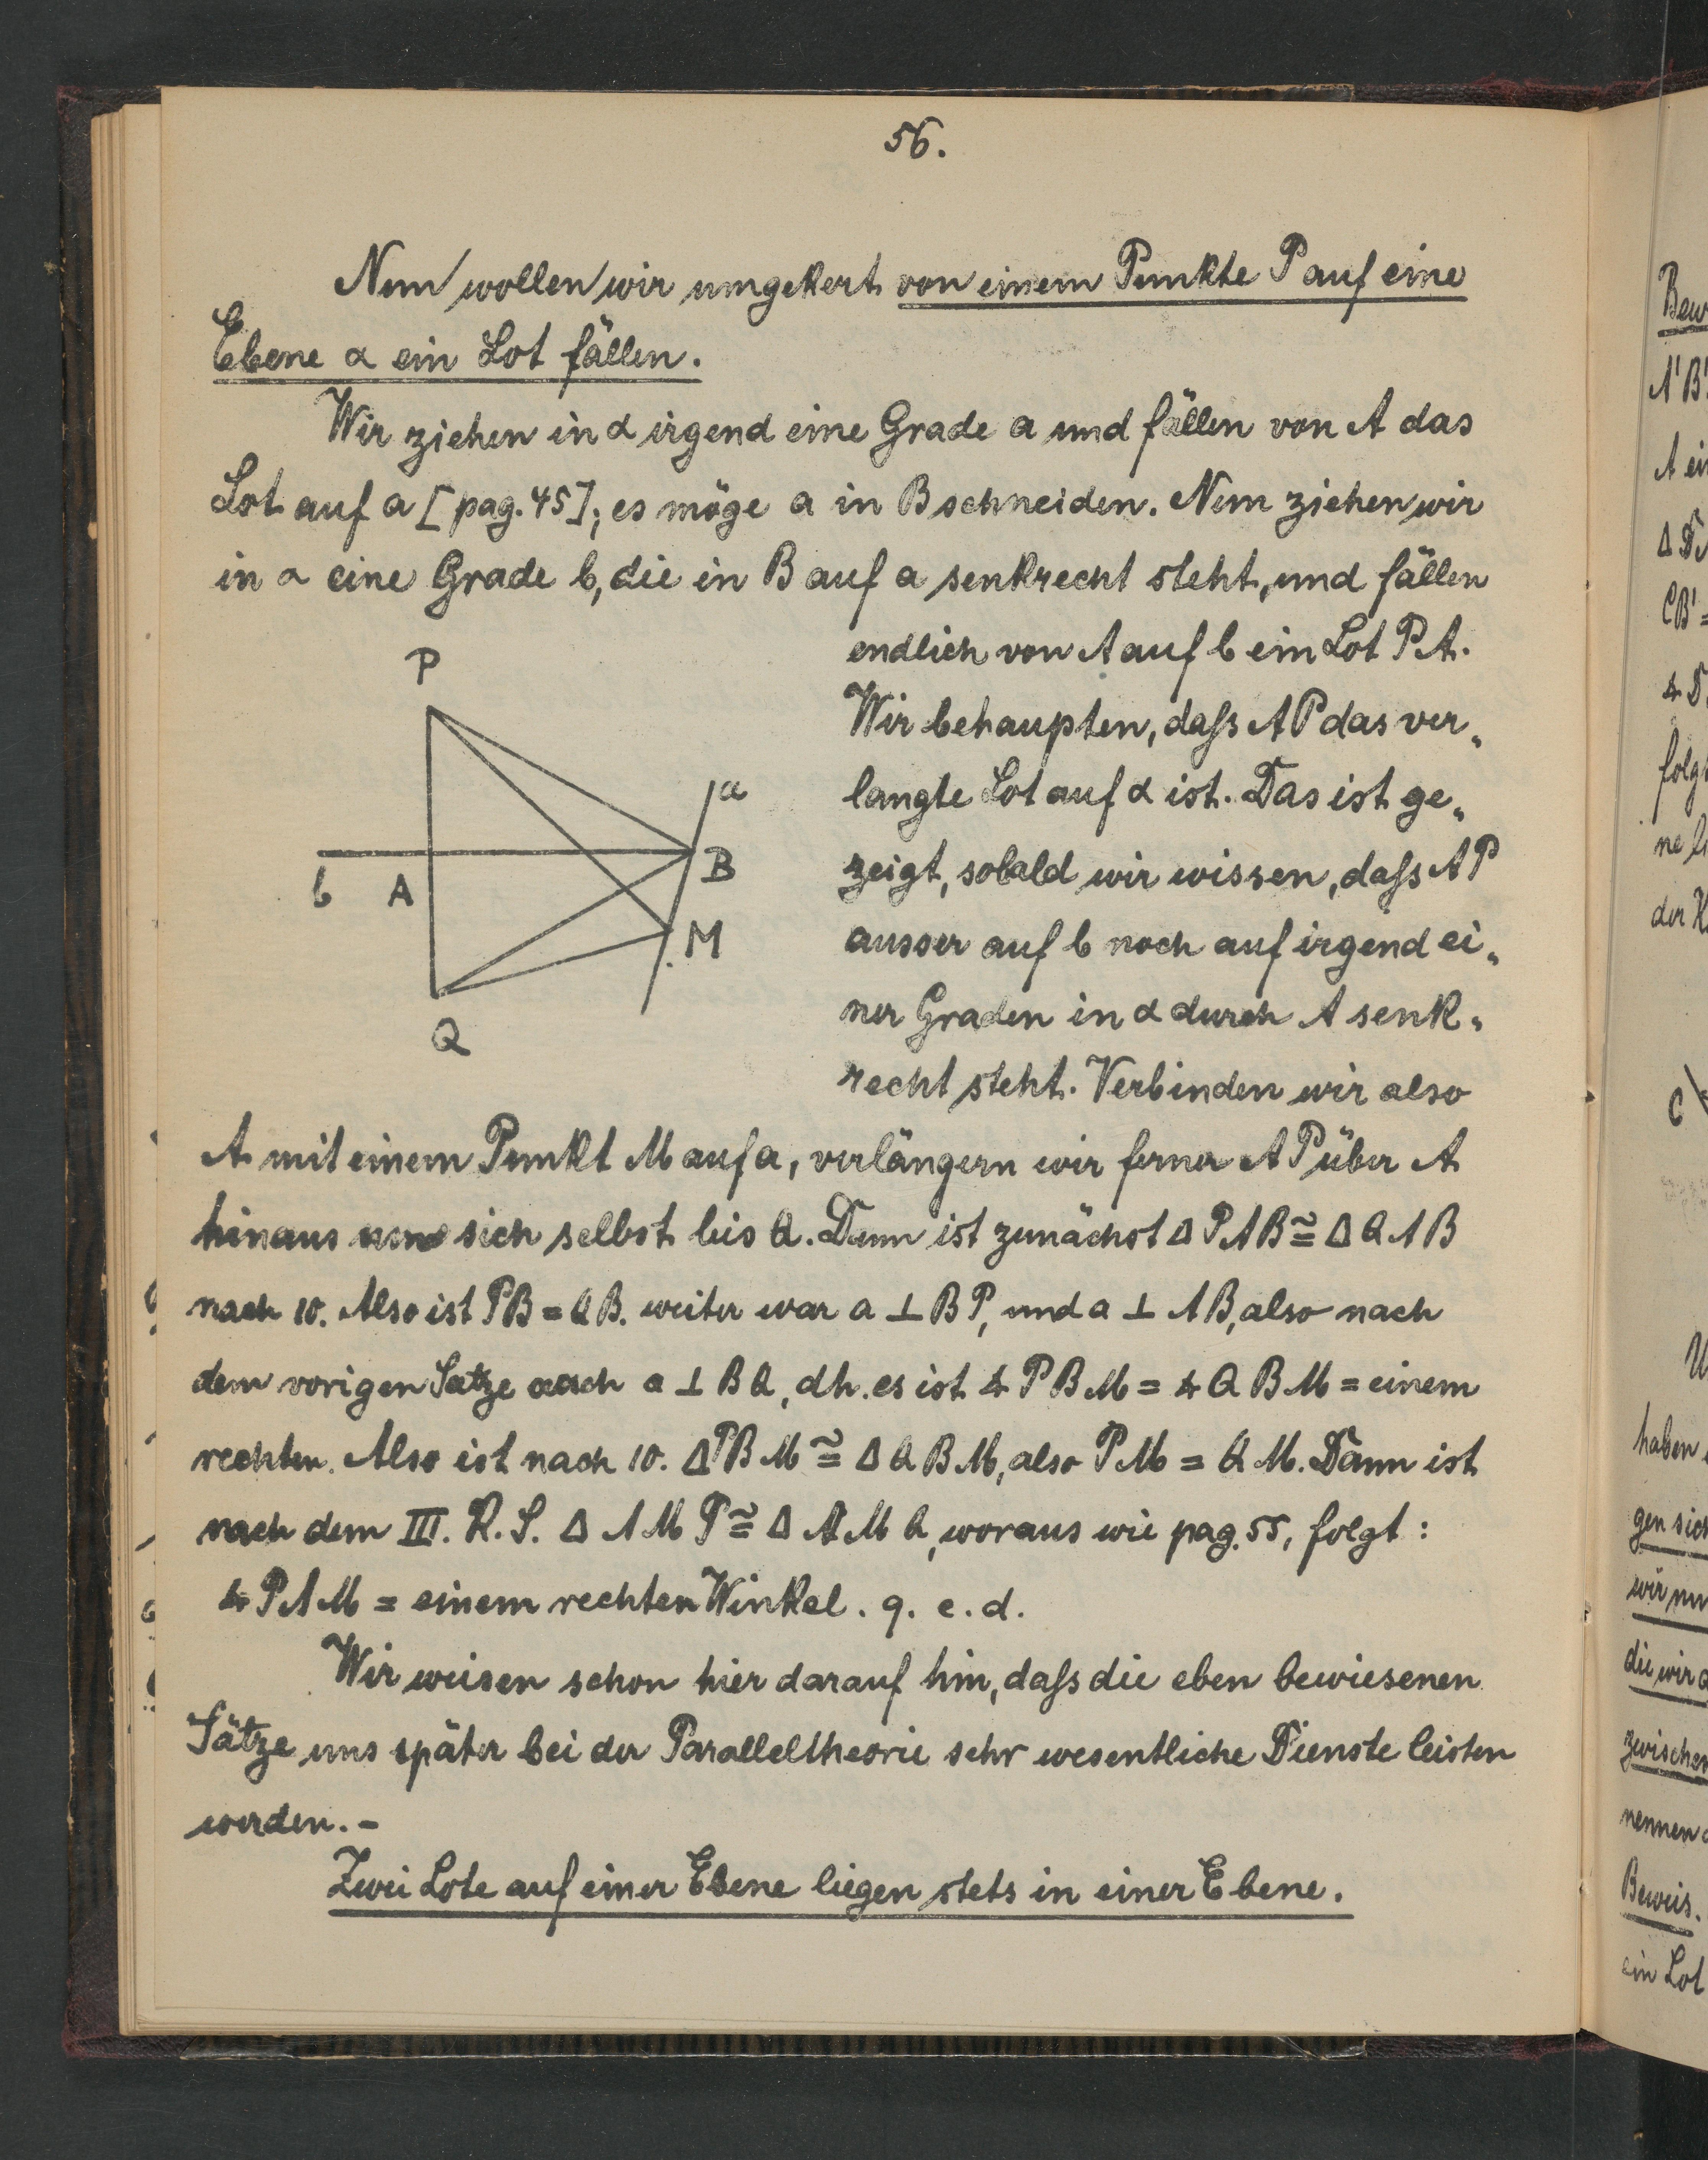 56.
Nun wollen wir umgekert von einem Punkte P auf eine
Ebene α ein Lot fällen.
Wir ziehen in α irgend eine Grade a und fällen von A das
Lot auf a [pag. 45]; es möge a in B schneiden. Nun ziehen wir
in α eine Grade b, die in B auf a senkrecht steht, und fällen
endlich von A auf b ein Lot PA.
Wir behaupten, daſs AP das ver„
langte Lot auf α ist. Das ist ge„
zeigt, sobald wir wissen, daſs AP
ausser auf b noch auf irgend ei„
ner Graden in α durch A senk„
recht steht. Verbinden wir also
P
a
B
b
A
M
Q
A mit einem Punkt M auf a, verlängern wir ferner AP über A
hinaus um sich selbst bis Q. Dann ist zunächst Δ PAB ≅ Δ QAB
nach 10. Also ist PB = QB. weiter war a ⊥ BP, und a ⊥ AB, also nach
dem vorigen Satze auch a ⊥ BQ, dh. es ist ∢ PBM = ∢ QBM = einem
rechten. Also ist nach 10. Δ PBM ≅ Δ QBM, also PM = QM. Dann ist
nach dem III. K. S. Δ AMP ≅ Δ AMQ, woraus wie pag. 55, folgt:
∢ PAM = einem rechten Winkel. q. e. d.
Wir weisen schon hier darauf hin, daſs die eben bewiesenen
Sätze uns später bei der Paralleltheorie sehr wesentliche Dienste leisten
werden. –
Zwei Lote auf einer Ebene liegen stets in einer Ebene.